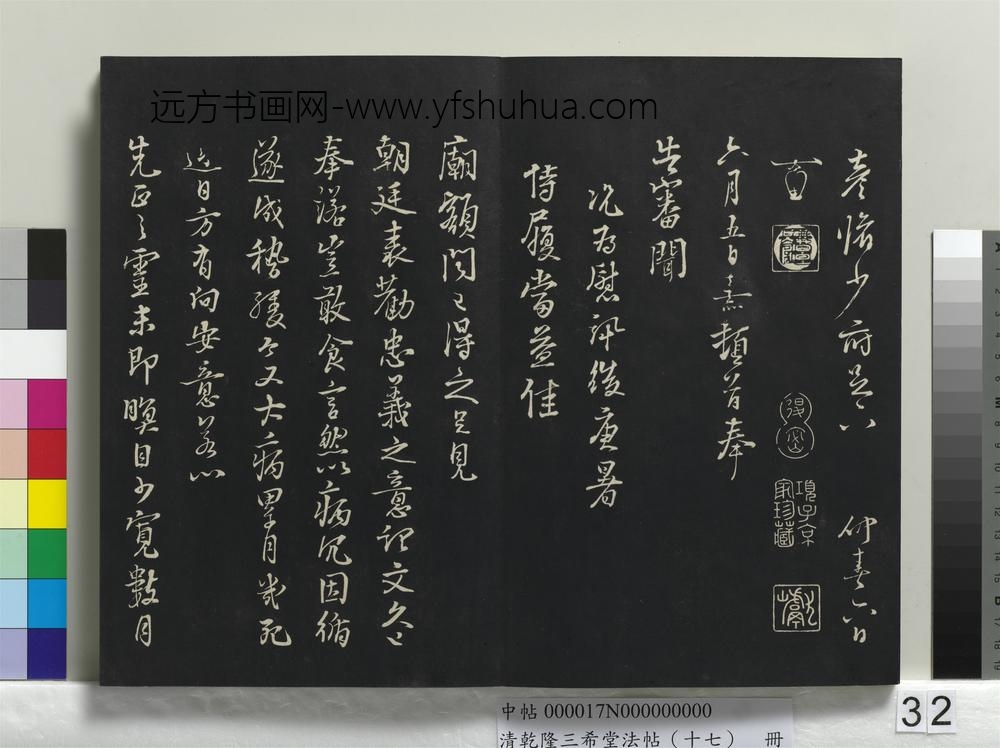 彥脩少府足下 仲春六日
項子京家珍藏
六月五日熹頓首奉
告審聞
況為慰訊後庚暑
侍履當益佳
廟額聞已得之足見
朝廷表勸忠義之意記文久已
奉諾豈敢食言然以病冗因循
遂成稽緩今又大病畢月幾死
近日方有向安意若以
先正之靈未即瞑目少寬數月
远方书画网-www.yfshuhua.com
中帖 000017N000000000
清乾隆三希堂法帖（十七） 冊
32